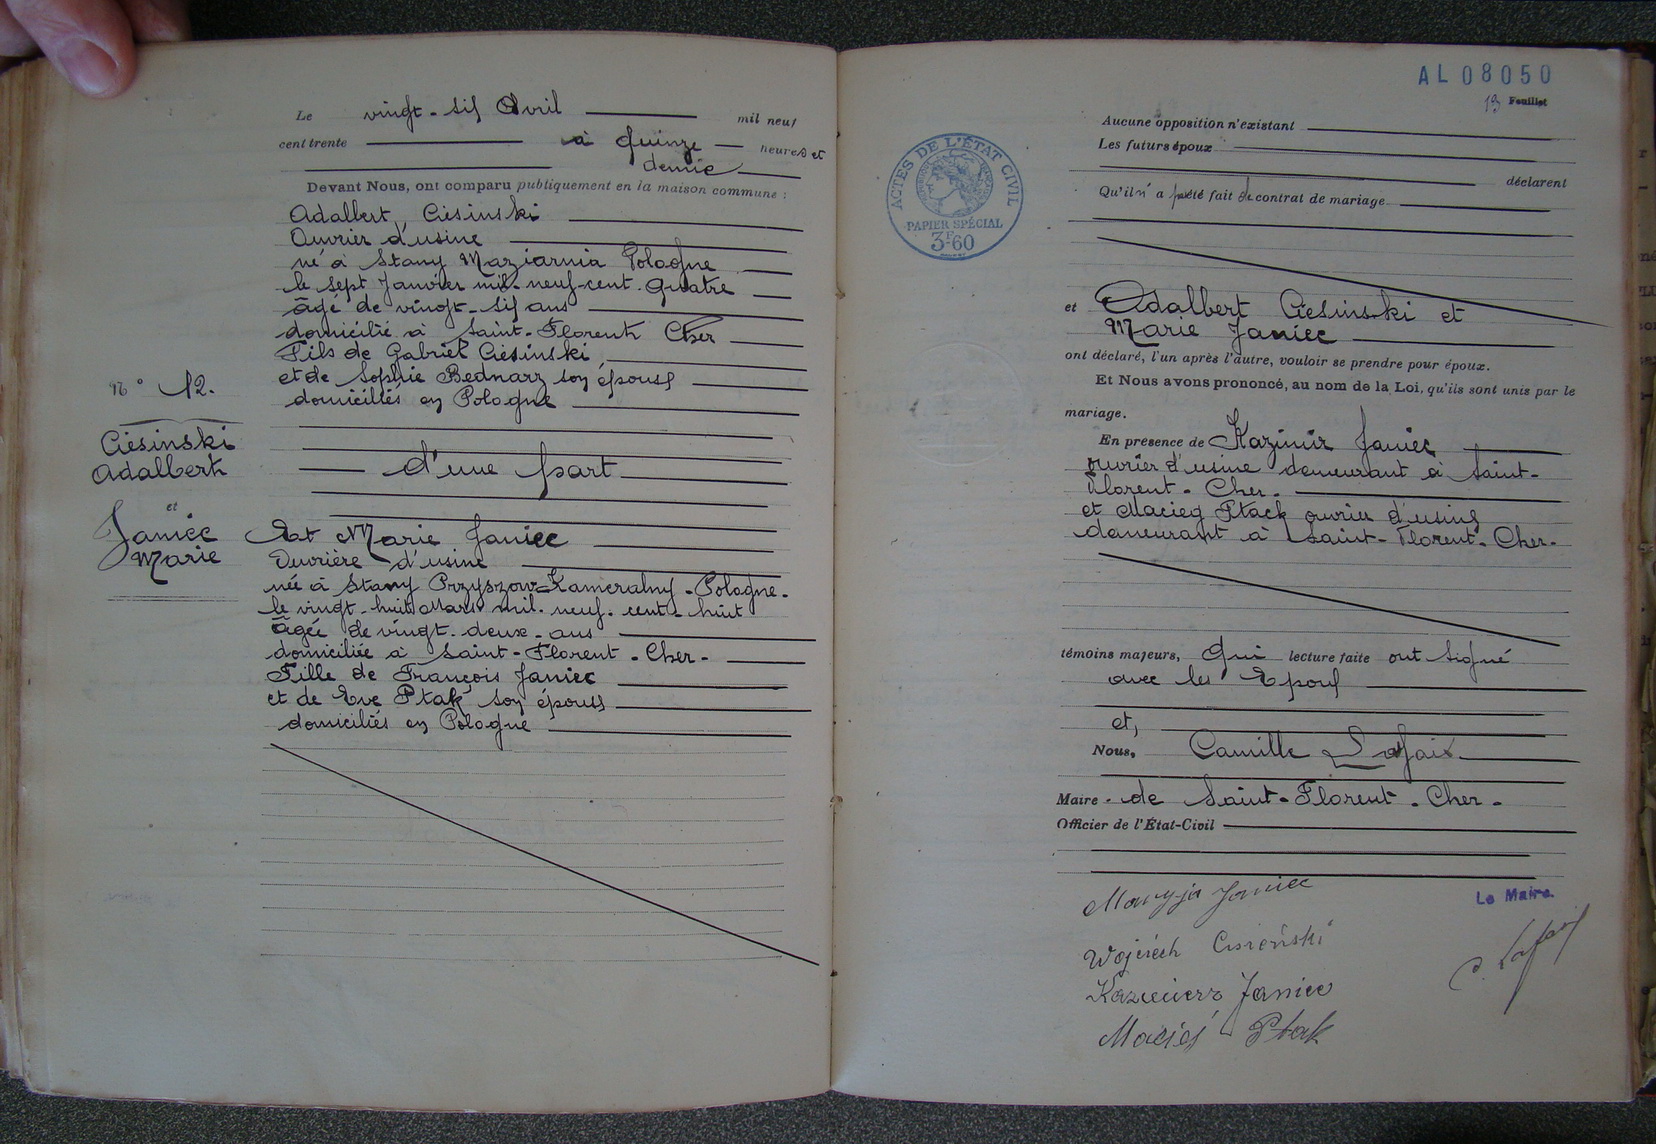 Le vingt-six Avril mil neuf
cent trente à quinze heures et
demie
Devant Nous, ont comparu publiquement en la maison commune :
Adalbert, Ciesinski
Ouvrier d'usine
né à Stany Maziarnia Pologne
le sept Janvier mil-neuf-cent-quatre
âgé de vingt-six ans
domicilié à Saint-Florent Cher
Fils de Gabriel Ciesinski
et de Sophie Bednarz son épouse
domiciliés en Pologne
d'une part
N° 12.
Ciesinski
Adalbert
et
Janiec
Marie
Et Marie Janiec
Ouvrière d'usine
née à Stany Przyszow-Kameralny-Pologne-
le vingt-huit Mars mil-neuf-cent-huit
âgée de vingt-deux-ans
domiciliée à Saint-Florent-Cher-
Fille de François Janiec
et de Eve Ptak son épouse
domiciliés en Pologne
AL 08050
13 Feuillet
ACTES DE L'ÉTAT CIVIL
PAPIER SPÉCIAL
3F60
Aucune opposition n'existant
Les futurs époux
déclarent
Qu'il n'a pas été fait de contrat de mariage
et Adalbert Ciesinski et
Marie Janiec
ont déclaré, l'un après l'autre, vouloir se prendre pour époux.
Et Nous avons prononcé, au nom de la Loi, qu'ils sont unis par le
mariage.
En présence de Kazimir Janiec
ouvrier d'usine demeurant à Saint-
Florent-Cher-
et Macieg Ptack ouvrier d'usine
demeurant à Saint-Florent-Cher-
témoins majeurs, qui lecture faite ont signé
avec les Epoux
et,
Nous, Camille Lafaix
Maire - de Saint-Florent-Cher-
Officier de l'État-Civil
Maryja Janiec
Le Maire.
Wojciech Ciesieński
C. Lafaix
Kazimierz Janiec
Maciej Ptak